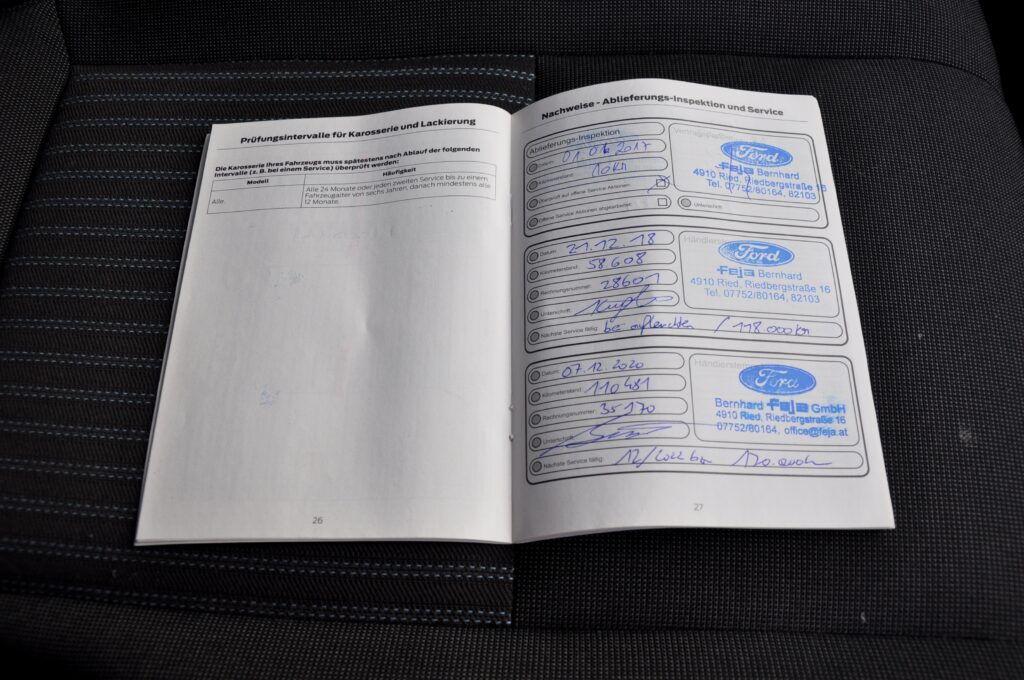 Prüfungsintervalle für Karosserie und Lackierung
Die Karosserie Ihres Fahrzeugs muss spätestens nach Ablauf der folgenden
Intervalle (z. B. bei einem Service) überprüft werden:
Modell Häufigkeit
Alle. Alle 24 Monate oder jeden zweiten Service bis zu einem
Fahrzeugalter von sechs Jahren, danach mindestens alle
12 Monate.
26
Nachweise - Ablieferungs-Inspektion und Service
Ablieferungs-Inspektion
Datum: 01.06.2017
Kilometerstand: 10km
Überprüft auf offene Service Aktionen:
Offene Service Aktionen abgearbeitet:
Ford
Feja Bernhard
4910 Ried, Riedbergstraße 16
Tel. 07752/80164, 82103
Unterschrift:
Datum: 21.12.18
Kilometerstand: 58.608
Rechnungsnummer: 28601
Unterschrift:
Nächste Service fällig: bei aufleuchten / 118.000km
Ford
Feja Bernhard
4910 Ried, Riedbergstraße 16
Tel. 07752/80164, 82103
Datum: 07.12.2020
Kilometerstand: 110481
Rechnungsnummer: 35170
Unterschrift:
Nächste Service fällig: 12/2022
Ford
Bernhard Feja GmbH
4910 Ried, Riedbergstraße 16
07752/80164, office@feja.at
27